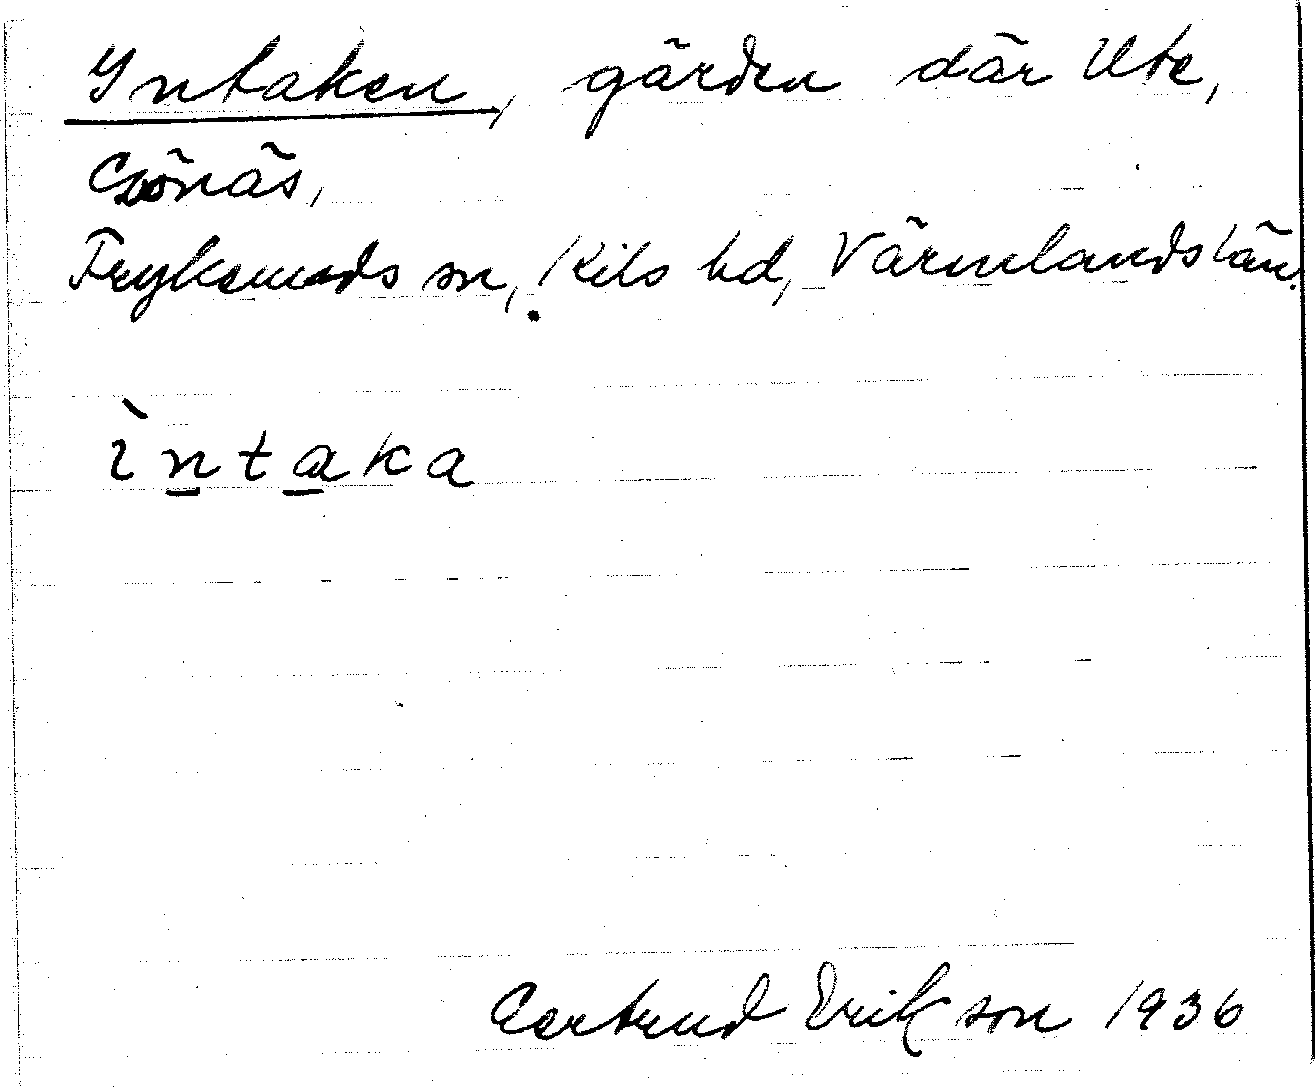 Intaken, gärden där Ute,
Gönäs,
Frykeruds sn, Kils hd, Värmlands län.
ìntaka
Gertrud Erikson 1936